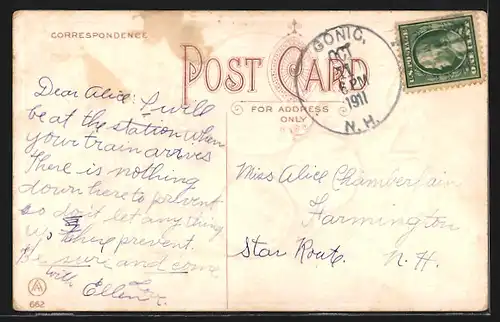 CORRESPONDENCE
POST CARD
FOR ADDRESS
ONLY
GONIC,
OCT
6 PM
1911
N.H.
U.S. POSTAGE
Dear Alice: I will
be at the station when
your train arrives
There is nothing
down here to prevent
so don't let anything
up there prevent.
Be sure and come
with
Ellen
Miss Alice Chamberlain
Farmington
Star Route. N.H.
A
662